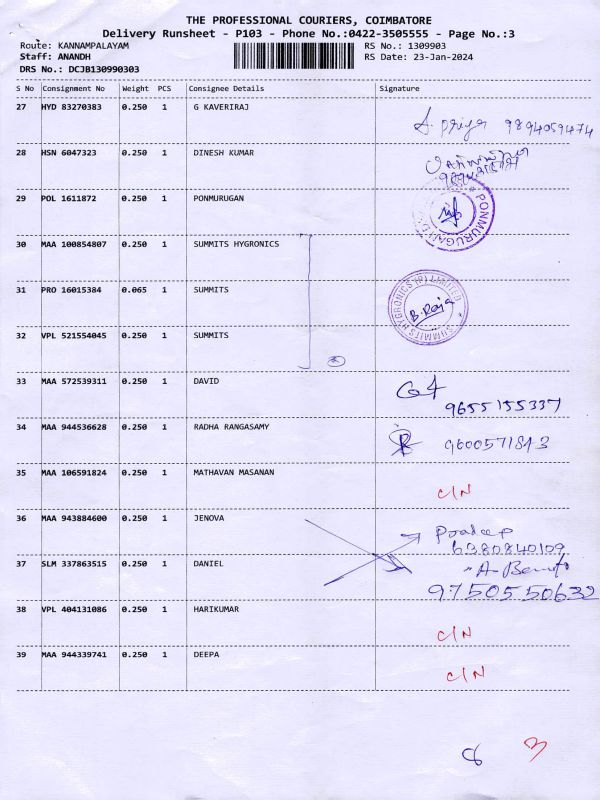 THE PROFESSIONAL COURIERS, COIMBATORE
Delivery Runsheet - P103 - Phone No.:0422-3505555 - Page No.:3
Route: KANNAMPALAYAM RS No.: 1309903
Staff: ANANDH RS Date: 23-Jan-2024
DRS No.: DCJB130990303
S No Consignment No Weight PCS Consignee Details Signature
27 HYD 83270383 0.250 1 G KAVERIRAJ
A. Priya 9894059474
28 HSN 6047323 0.250 1 DINESH KUMAR
29 POL 1611872 0.250 1 PONMURUGAN
PONMURUGAN
30 MAA 100854807 0.250 1 SUMMITS HYGRONICS
31 PRO 16015384 0.065 1 SUMMITS
SUMMITS HYGRONICS (P) LIMITED
B. Raja
32 VPL 521554045 0.250 1 SUMMITS
33 MAA 572539311 0.250 1 DAVID
9655155337
34 MAA 944536628 0.250 1 RADHA RANGASAMY
9600571843
35 MAA 106591824 0.250 1 MATHAVAN MASANAN
C/N
36 MAA 943884600 0.250 1 JENOVA
Pradeep
6380840109
37 SLM 337863515 0.250 1 DANIEL
9750550632
38 VPL 404131086 0.250 1 HARIKUMAR
C/N
39 MAA 944339741 0.250 1 DEEPA
C/N
8 3